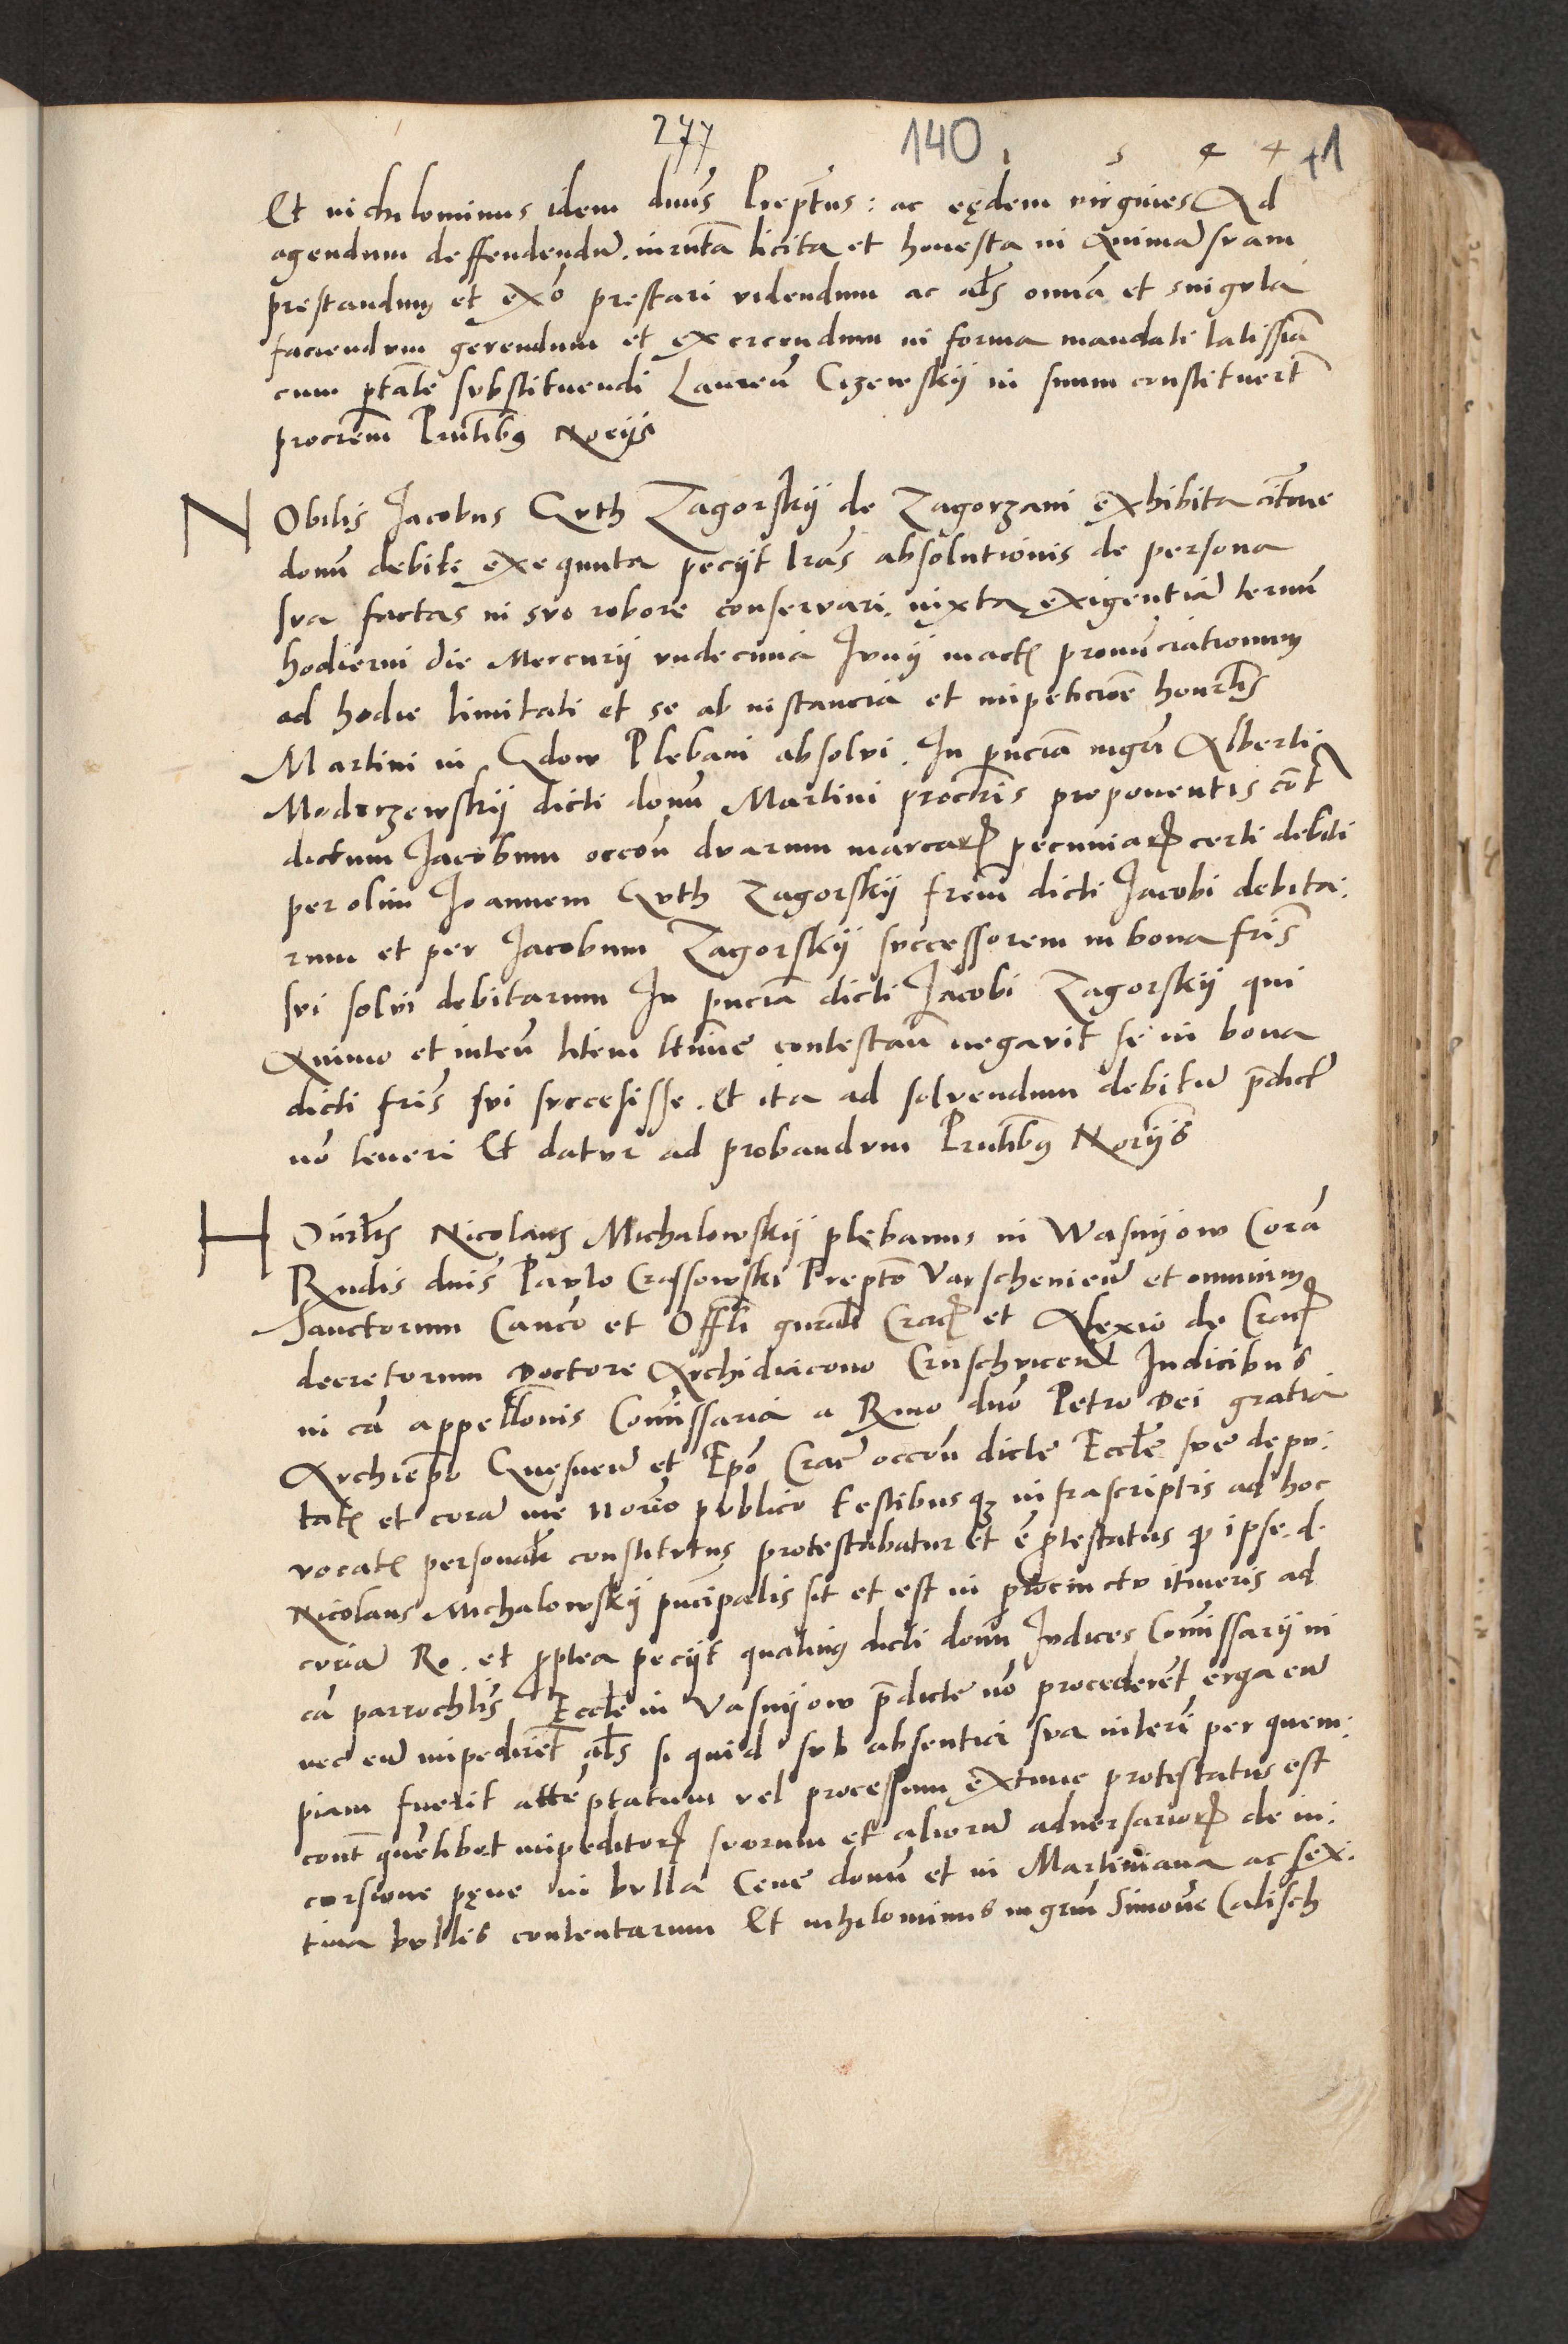 277 140 1 5 4 4 +1
Et nichilominus idem dnus Prepntus: ac eędem virgines Ad
agendum deffendendum. iurnta licita et honesta in Animam suam
prestandum et exo prestari videndum ac als omnia et singula
faciendum gerendum et exercendum in forma mandati latissia
cum ptate substituendi Laureum Cizewskij in suum constituert
procrem Prntibus Noriis
NObilis Jacobus Guth Zagorskij de Zagorzani exhibita citne
domi debite exequuta peciit lras absolutionis de persona
sua factas in suo robore conservari. iuxta exigentiam termini
hodierni die Mercurij undecima Junij inactis pronunciationum
ad hodie limitati et se ab instancia et impeticioe honrlis
Martini in Gdow Plebani absolvi. In pncia mgri Alberti
Modrzewskij dicti domi Martini procuris proponentis cont
dictum Jacobum occon duarum marcarum pecuniarum certi debiti
per olim Joannem Guth Zagorskij frem dicti Jacobi debita:
rum et per Jacobum Zagorskij successorem in bona fris
sui solvi debitarum In pncia dicti Jacobi Zagorskij qui
Animo et inten litem ltime contestan negavit se in bona
dicti fris sui succesisse. Et ita ad solvendum debitum pdictum
no teneri Et datur ad probandum Prntibus Noriis
HOnrlis Nicolaus Michalowskij plebanus in Wasnijow Cora
Rndis dnis Paulo Crassowski Prepto Varschenien et omnium
Sanctorum Canco et Offli gnrali Crac et Alexio de Crac
decretorum Doctore Archidiacono Cruschvicen Judicibus
in ca appellonis Comissaria a Rmo dno Petro Dei gratia
Archiepo Gnesnen et Epo Crac occon dicte Eccle sue depu:
tatis et coram me norio publico testibusque infrascriptis ad hoc
vocatis personalr constitutus protestabatur et e protestatus quod ipse. d.
Nicolaus Michalowskij pncipalis sit et est in procinctu itineris ad
curiam Ro. et propterea peciit quatinus dicti domi Judices Comissarij in
ca parrochlis Eccle in Vasnijow pdicte no procederent erga eum
nec eum impedirent als si quid sub absentia sua interi per quem:
piam fuerit atteptatum vel processum extunc protestatus est
cont quelibet impeditorum suorum et aliorum adversariorum de in:
cursione pęne in bulla Cene domi et in Martiniana ac sex:
tina bullis contentarum Et nihilominus mgrum Simone Calisch